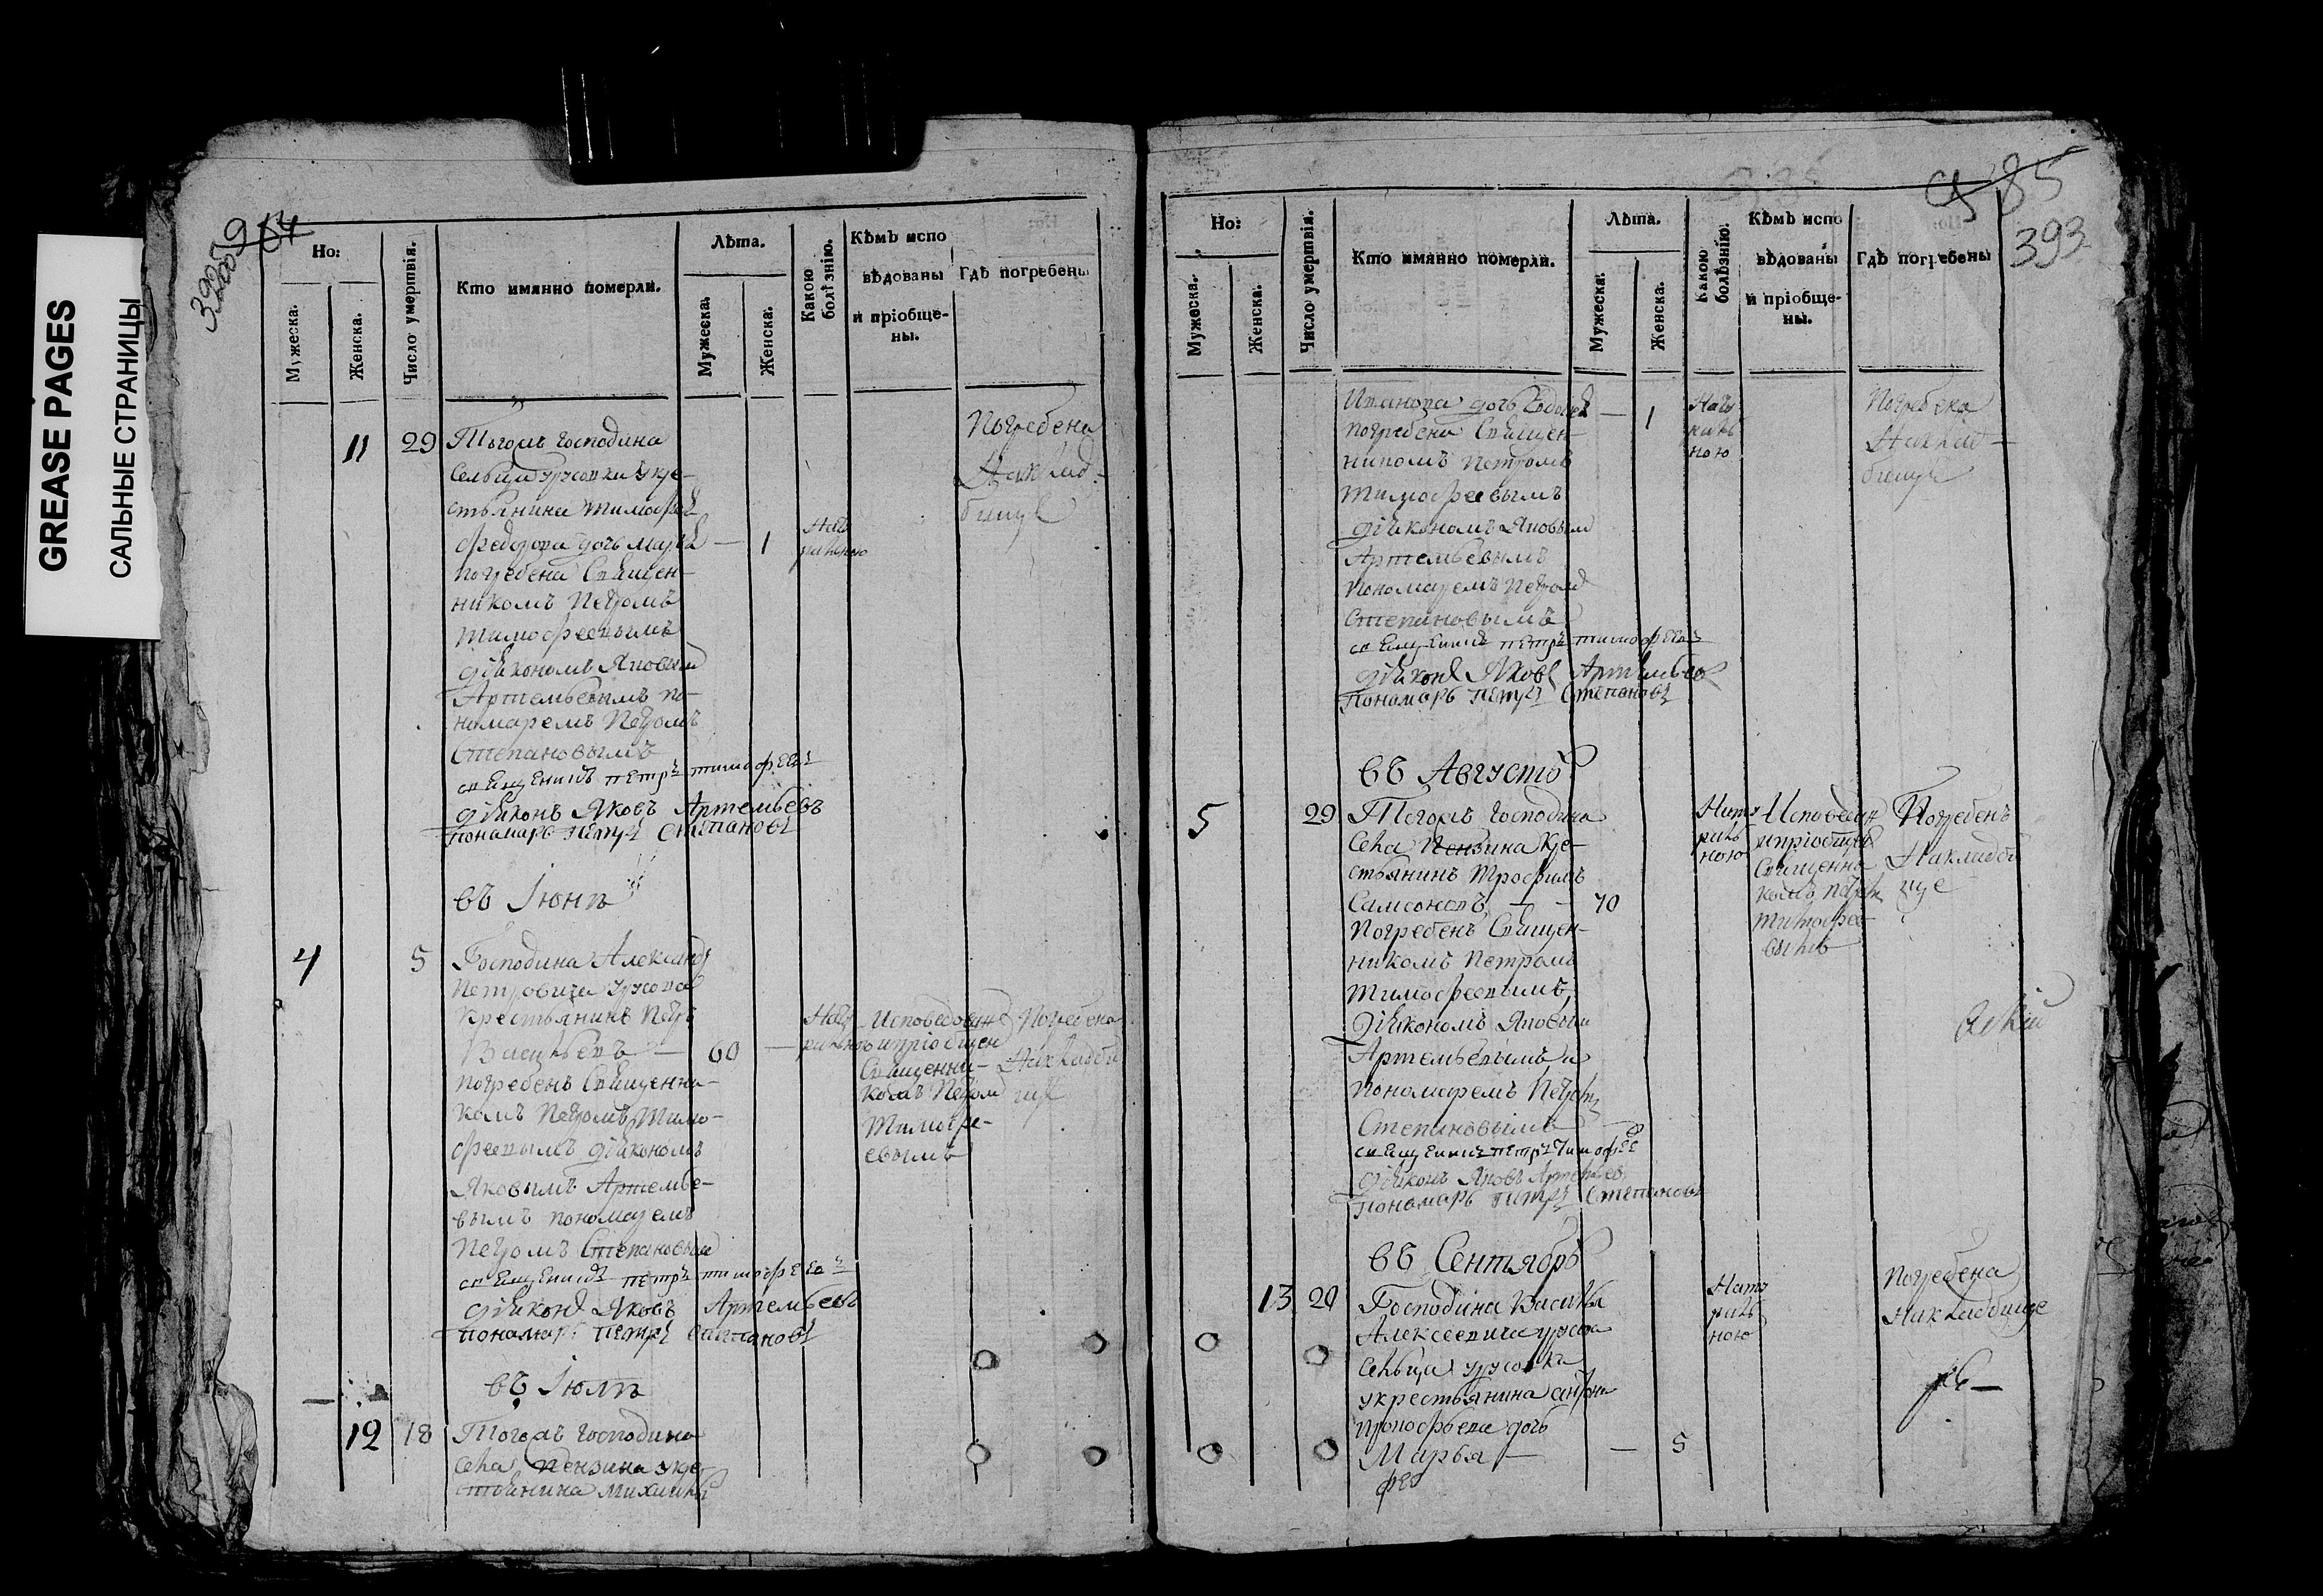 GREASE PAGES
САЛЬНЫЕ СТРАНИЦЫ
392
Но:
Мужеска.
Женска.
Число умертвія.
Кто имянно померли.
Лѣта.
Мужеска.
Женска.
Какою болѣзнію.
Кѣмъ испо
вѣдованы
и пріобще-
ны.
Гдѣ погребены
11
29
Тогожъ господина
Сельца Урусовки укре-
стьянина тимофея
федорова дочь марья — 1
погребена Священ-
никомъ петромъ
тимофеевымъ
діякономъ Яковым
Артемьевымъ по-
номаремъ петромъ
Степановымъ
священникъ петръ тимофеевъ
діяконъ Яковъ Артемьевъ
пономарь петръ Степановъ
Погребена
на клад-
бище
въ Іюнѣ
4
5
Господина Александр
Петровича Урусова
крестьянинъ петръ
Васильевъ — 60 —
погребенъ Священни-
комъ петромъ Тимо-
феевымъ діякономъ
Яковымъ Артемье-
вымъ пономаремъ
петромъ Степановым
священникъ петръ тимофеевъ
діяконъ Яковъ Артемьевъ
пономарь петръ Степановъ
Исповедован
и пріобщен
Священни-
комъ петром
Тимофе-
евымъ
Погребена
на кладби
ще
въ Іюлѣ
12
18
Тогожъ господина
села Пензина укре
стьянина михаила
85
393
Но:
Мужеска.
Женска.
Число умертвія.
Кто имянно померли.
Лѣта.
Мужеска.
Женска.
Какою болѣзнію.
Кѣмъ испо
вѣдованы
и пріобще-
ны.
Гдѣ погребены
Иванова дочь — 1
погребена Священ-
никомъ петромъ
тимофеевымъ
діякономъ Яковым
Артемьевымъ
пономаремъ петром
Степановымъ
священникъ петръ тимофеевъ
діяконъ Яковъ Артемьевъ
Пономарь петръ Степановъ
Погребена
на клад-
бище
въ Августѣ
5
29
Тогожъ господина
села Пензина кре-
стьянинъ Трофимъ
Самсоновъ — 70
Погребенъ Священ-
никомъ петромъ
тимофеевымъ
діякономъ Яковым
Артемьевымъ и
пономаремъ петром
Степановымъ
священникъ петръ тимофее
діяконъ Яковъ Артемьев
Пономарь петръ Степановъ
Исповедан
и пріобщен
Священни
комъ петром
тимофее
вымъ
Погребенъ
на кладби
ще
въ Сентябрѣ
13
20
Господина Василья
Алексеевича Урусова
сельца Урусовка
укрестьянина
дочь
Марья — 5
Натъ
раль
ною
Погребена
на кладбище